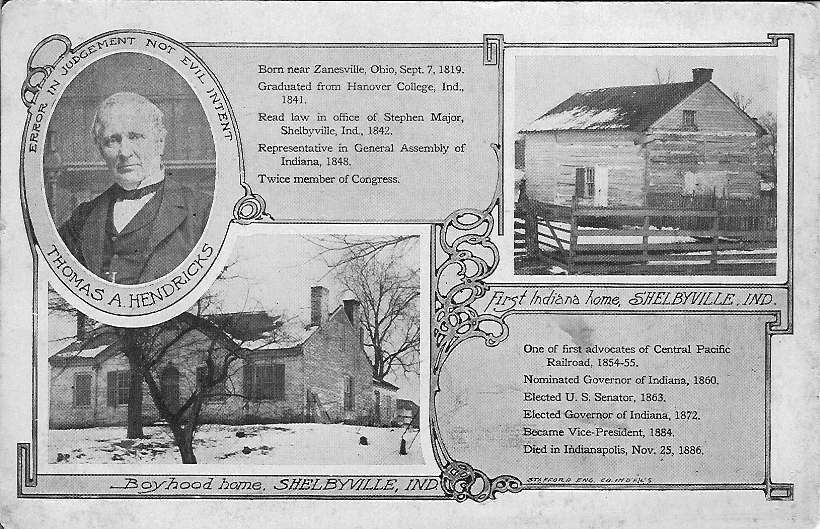 ERROR IN JUDGEMENT NOT EVIL INTENT
THOMAS A. HENDRICKS
Born near Zanesville, Ohio, Sept. 7, 1819.
Graduated from Hanover College, Ind.,
1841.
Read law in office of Stephen Major,
Shelbyville, Ind., 1842.
Representative in General Assembly of
Indiana, 1848.
Twice member of Congress.
First Indiana home, SHELBYVILLE, IND.
One of first advocates of Central Pacific
Railroad, 1854-55.
Nominated Governor of Indiana, 1860.
Elected U. S. Senator, 1863.
Elected Governor of Indiana, 1872.
Became Vice-President, 1884.
Died in Indianapolis, Nov. 25, 1886.
STAFFORD ENG. CO. IND'P'L'S
Boyhood home, SHELBYVILLE, IND